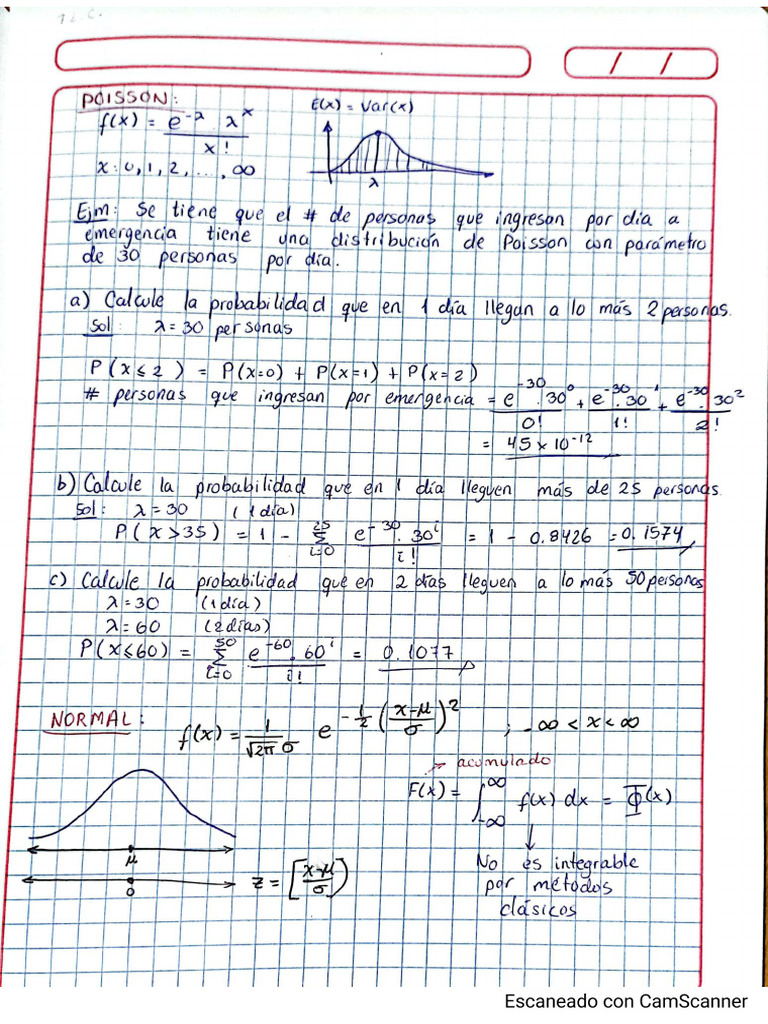 12 C.
/ /
POISSON:
E(x) = Var(x)
f(x) = e^-λ . λ^x / x!
x: 0, 1, 2, ..., ∞
λ
Ejm: Se tiene que el # de personas que ingresan por dia a
emergencia tiene una distribución de Poisson con parámetro
de 30 personas por día.
a) Calcule la probabilidad que en 1 día llegan a lo más 2 personas.
Sol: λ = 30 personas
P(x ≤ 2) = P(x=0) + P(x=1) + P(x=2)
# personas que ingresan por emergencia = e^-30 . 30^0 / 0! + e^-30 . 30^1 / 1! + e^-30 . 30^2 / 2!
= 45 x 10^-12
b) Calcule la probabilidad que en 1 día lleguen más de 25 personas
Sol: λ = 30 (1 día)
P(x > 35) = 1 - Σ_{i=0}^{25} e^-30 . 30^i / i! = 1 - 0.8426 = 0.1574
c) Calcule la probabilidad que en 2 días lleguen a lo más 50 personas
λ = 30 (1 día)
λ = 60 (2 días)
P(x ≤ 60) = Σ_{i=0}^{50} e^-60 . 60^i / i! = 0.1077
NORMAL:
f(x) = 1 / √2π σ e^{-1/2 (x-μ / σ)^2} ; -∞ < x < ∞
→ acumulado
F(x) = ∫_{-∞}^{∞} f(x) dx = Φ(x)
μ
No es integrable
por métodos
clásicos
0
z = [x-μ / σ)
Escaneado con CamScanner